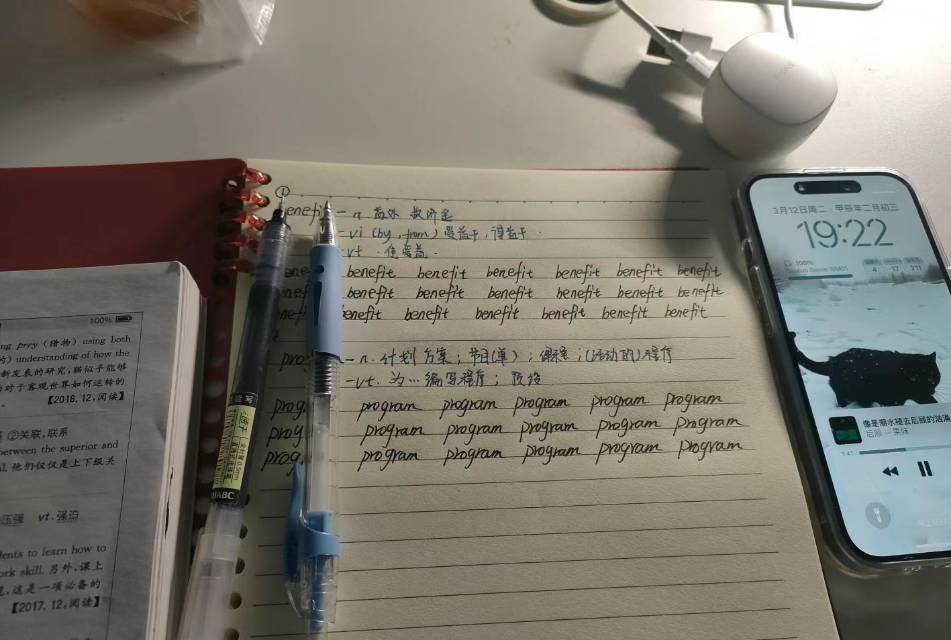 ①
benefit - n 益处 救济金
- vi (by, from) 受益于, 得益于.
- vt. 使受益.
benefit benefit benefit benefit benefit benefit
benefit benefit benefit benefit benefit benefit
benefit benefit benefit benefit benefit benefit
- n. 计划 方案; 节目(单); 课程; (活动的)程序
- vt. 为…编写程序; 预设
prog program program program program program
prog program program program program program
prog program program program program program
100%
ng prey (猎物) using both
) understanding of how the
新发表的研究, 猫似乎能够
对于客观世界如何运转的
【2018.12,阅读】
②关联,联系
between the superior and
他们仅仅是上下级关
压强 vt.强迫
dents to learn how to
ork skill. 另外,课上
,这是一项必备的
【2017.12,阅读】
3月12日周二·甲辰年二月初三
19:22
100%
4 17 211
像是潮水褪去后
1:41